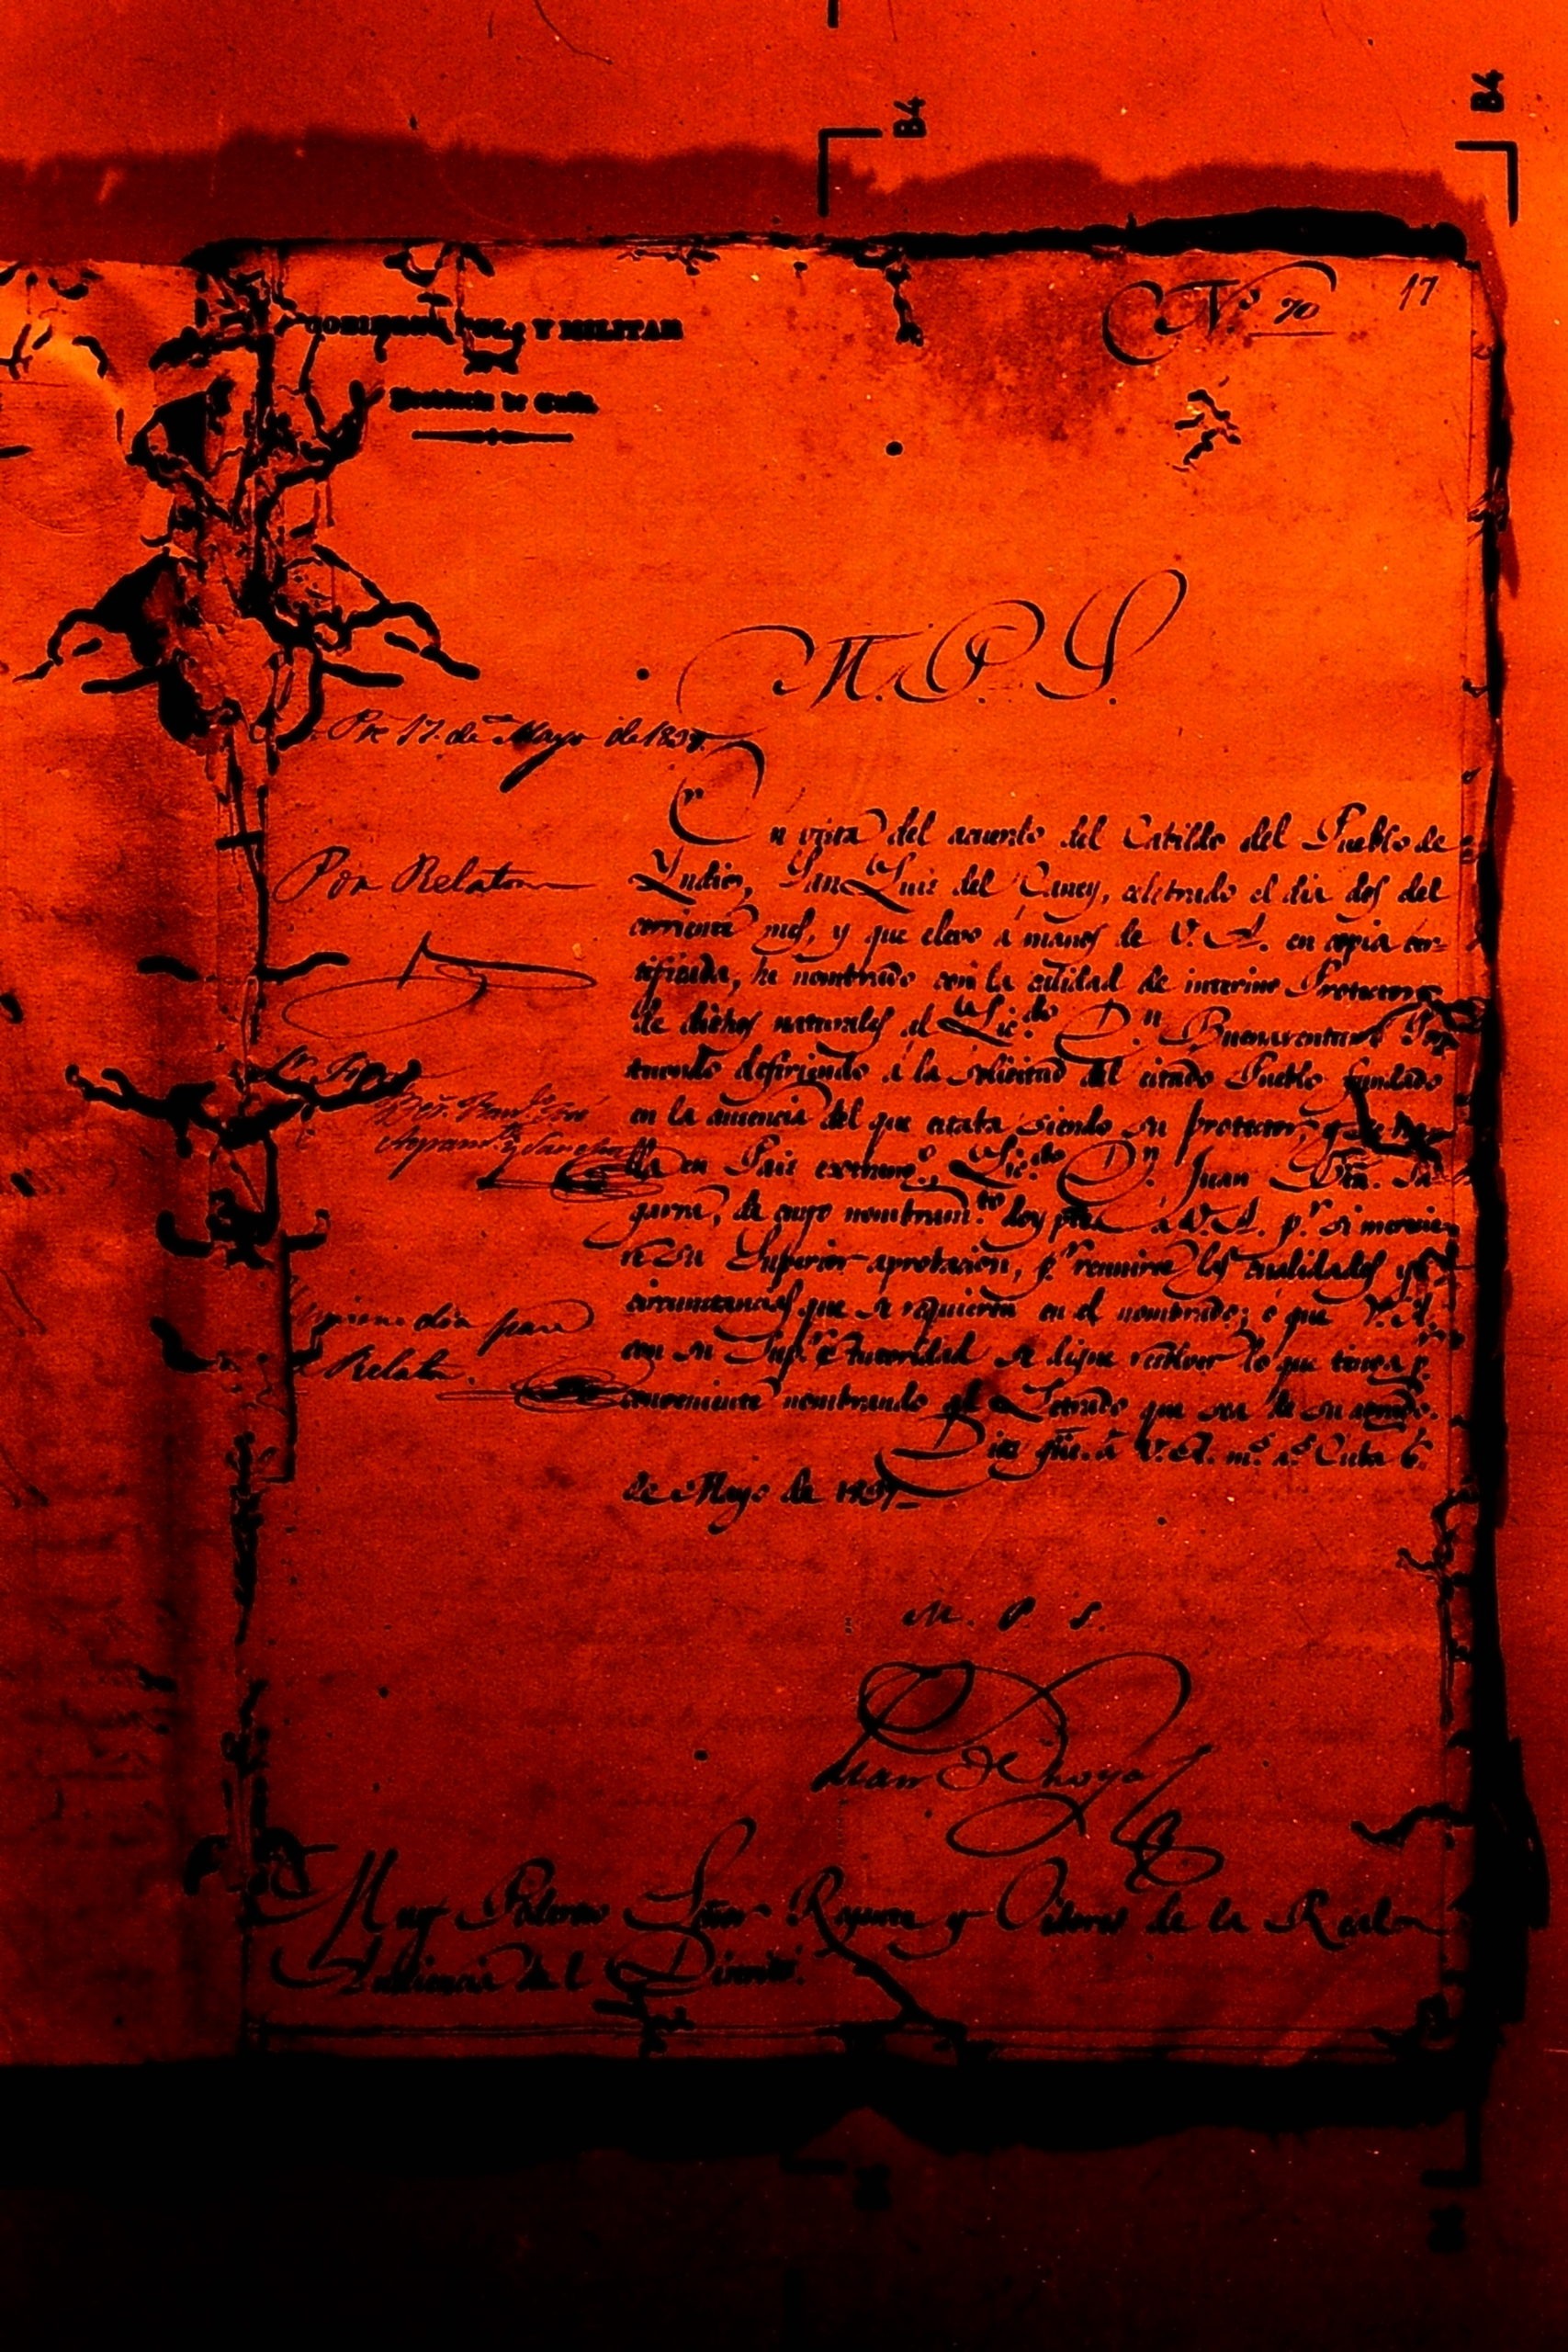 B4
B4
GOBIERNO Y MILITAR
Provincia de Cuba.
Nº 70
17
M. P. S.
Pre 17. de Mayo de 1837.
Por Relator
En vista del acuerdo del Cabildo del Pueblo de
Yndios, San Luis del Caney, celebrado el dia dos del
corriente mes, y que elevo á manos de V. A. en copia cer-
tificada, he nombrado con la calidad de interino Protector
de dichos naturales al Licdo Dn Buenaventura
defiriendo á la solicitud del citado Pueblo fundado
en la ausencia del que estaba siendo su protector, y
lla en Pais extrangº, Licdo Dn. Juan Bta. Sa-
garra, de cuyo nombramto doy pte á V. A. pr. si merecie-
re su Superior aprobacion, pr reunirse las cualidades y
circunstancias que se requieren en el nombrado; ó que V. A.
con su Supr Autoridad se digne resolver lo que tenga pr
conveniente nombrando al Letrado que sea de su agrado.
Dios gue. á V. A. ms as Cuba 6
de Mayo de 1837
M. P. S.
Juan de Moya
dia para
Relator.
Muy Poderoso Señor Regente y Oidores de la Real
Audiencia del Distrito.